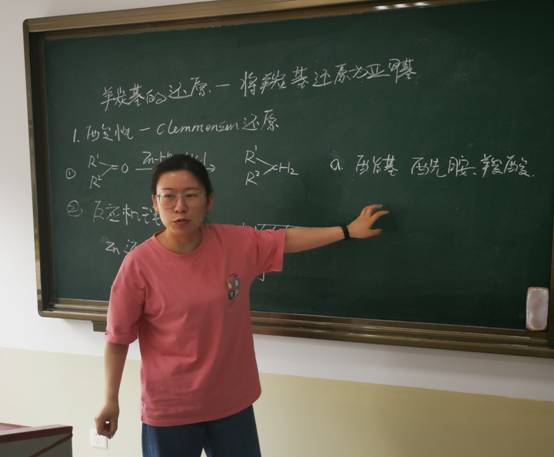 羰基的还原 — 将羰基还原为亚甲基
1. 酸性 — Clemmensen还原
① R¹ R² =O Zn-H R¹ R² CH₂
a 酯基 酰胺、羧酸
② 反应机
Zn